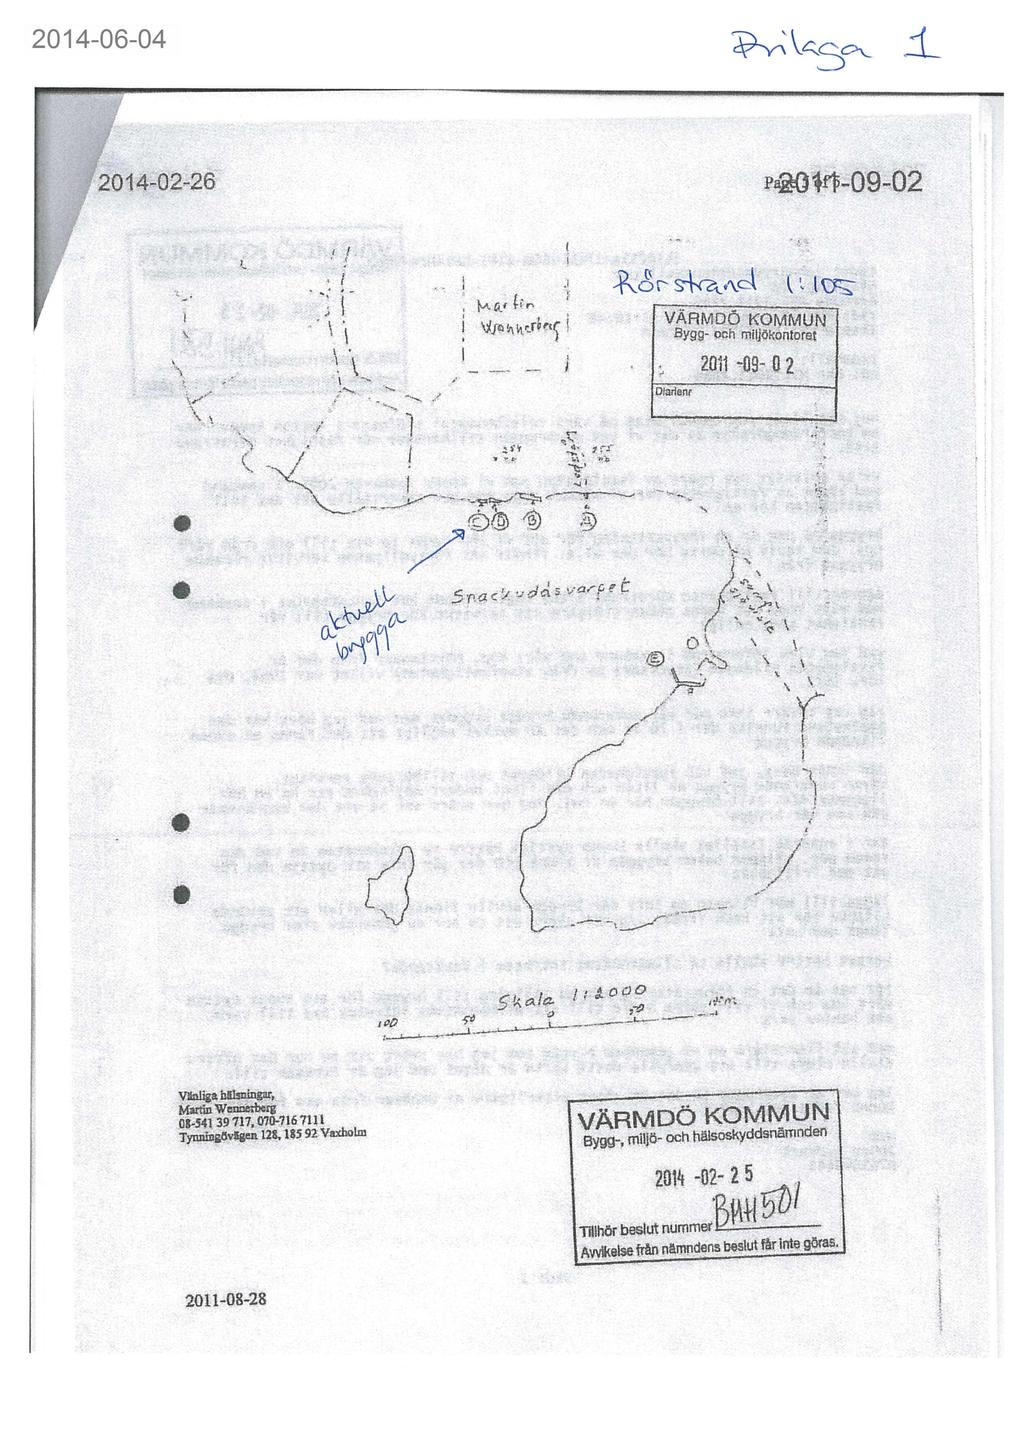 2014-06-04
Bilaga 1
2014-02-26
2011-09-02
Rörstrand 1:105
Martin
Wennerberg
VÄRMDÖ KOMMUN
Bygg- och miljökontoret
2011 -09- 02
Diarienr
C D B A
Snackuddsvarpet
aktuell
brygga
E
Skala 1:2000
100 50 0 50
Vänliga hälsningar,
Martin Wennerberg
08-541 39 717, 070-716 7111
Tynningövägen 128, 185 92 Vaxholm
VÄRMDÖ KOMMUN
Bygg-, miljö- och hälsoskyddsnämnden
2014 -02- 25
Tillhör beslut nummer BMH501
Avvikelse från nämndens beslut får inte göras.
2011-08-28